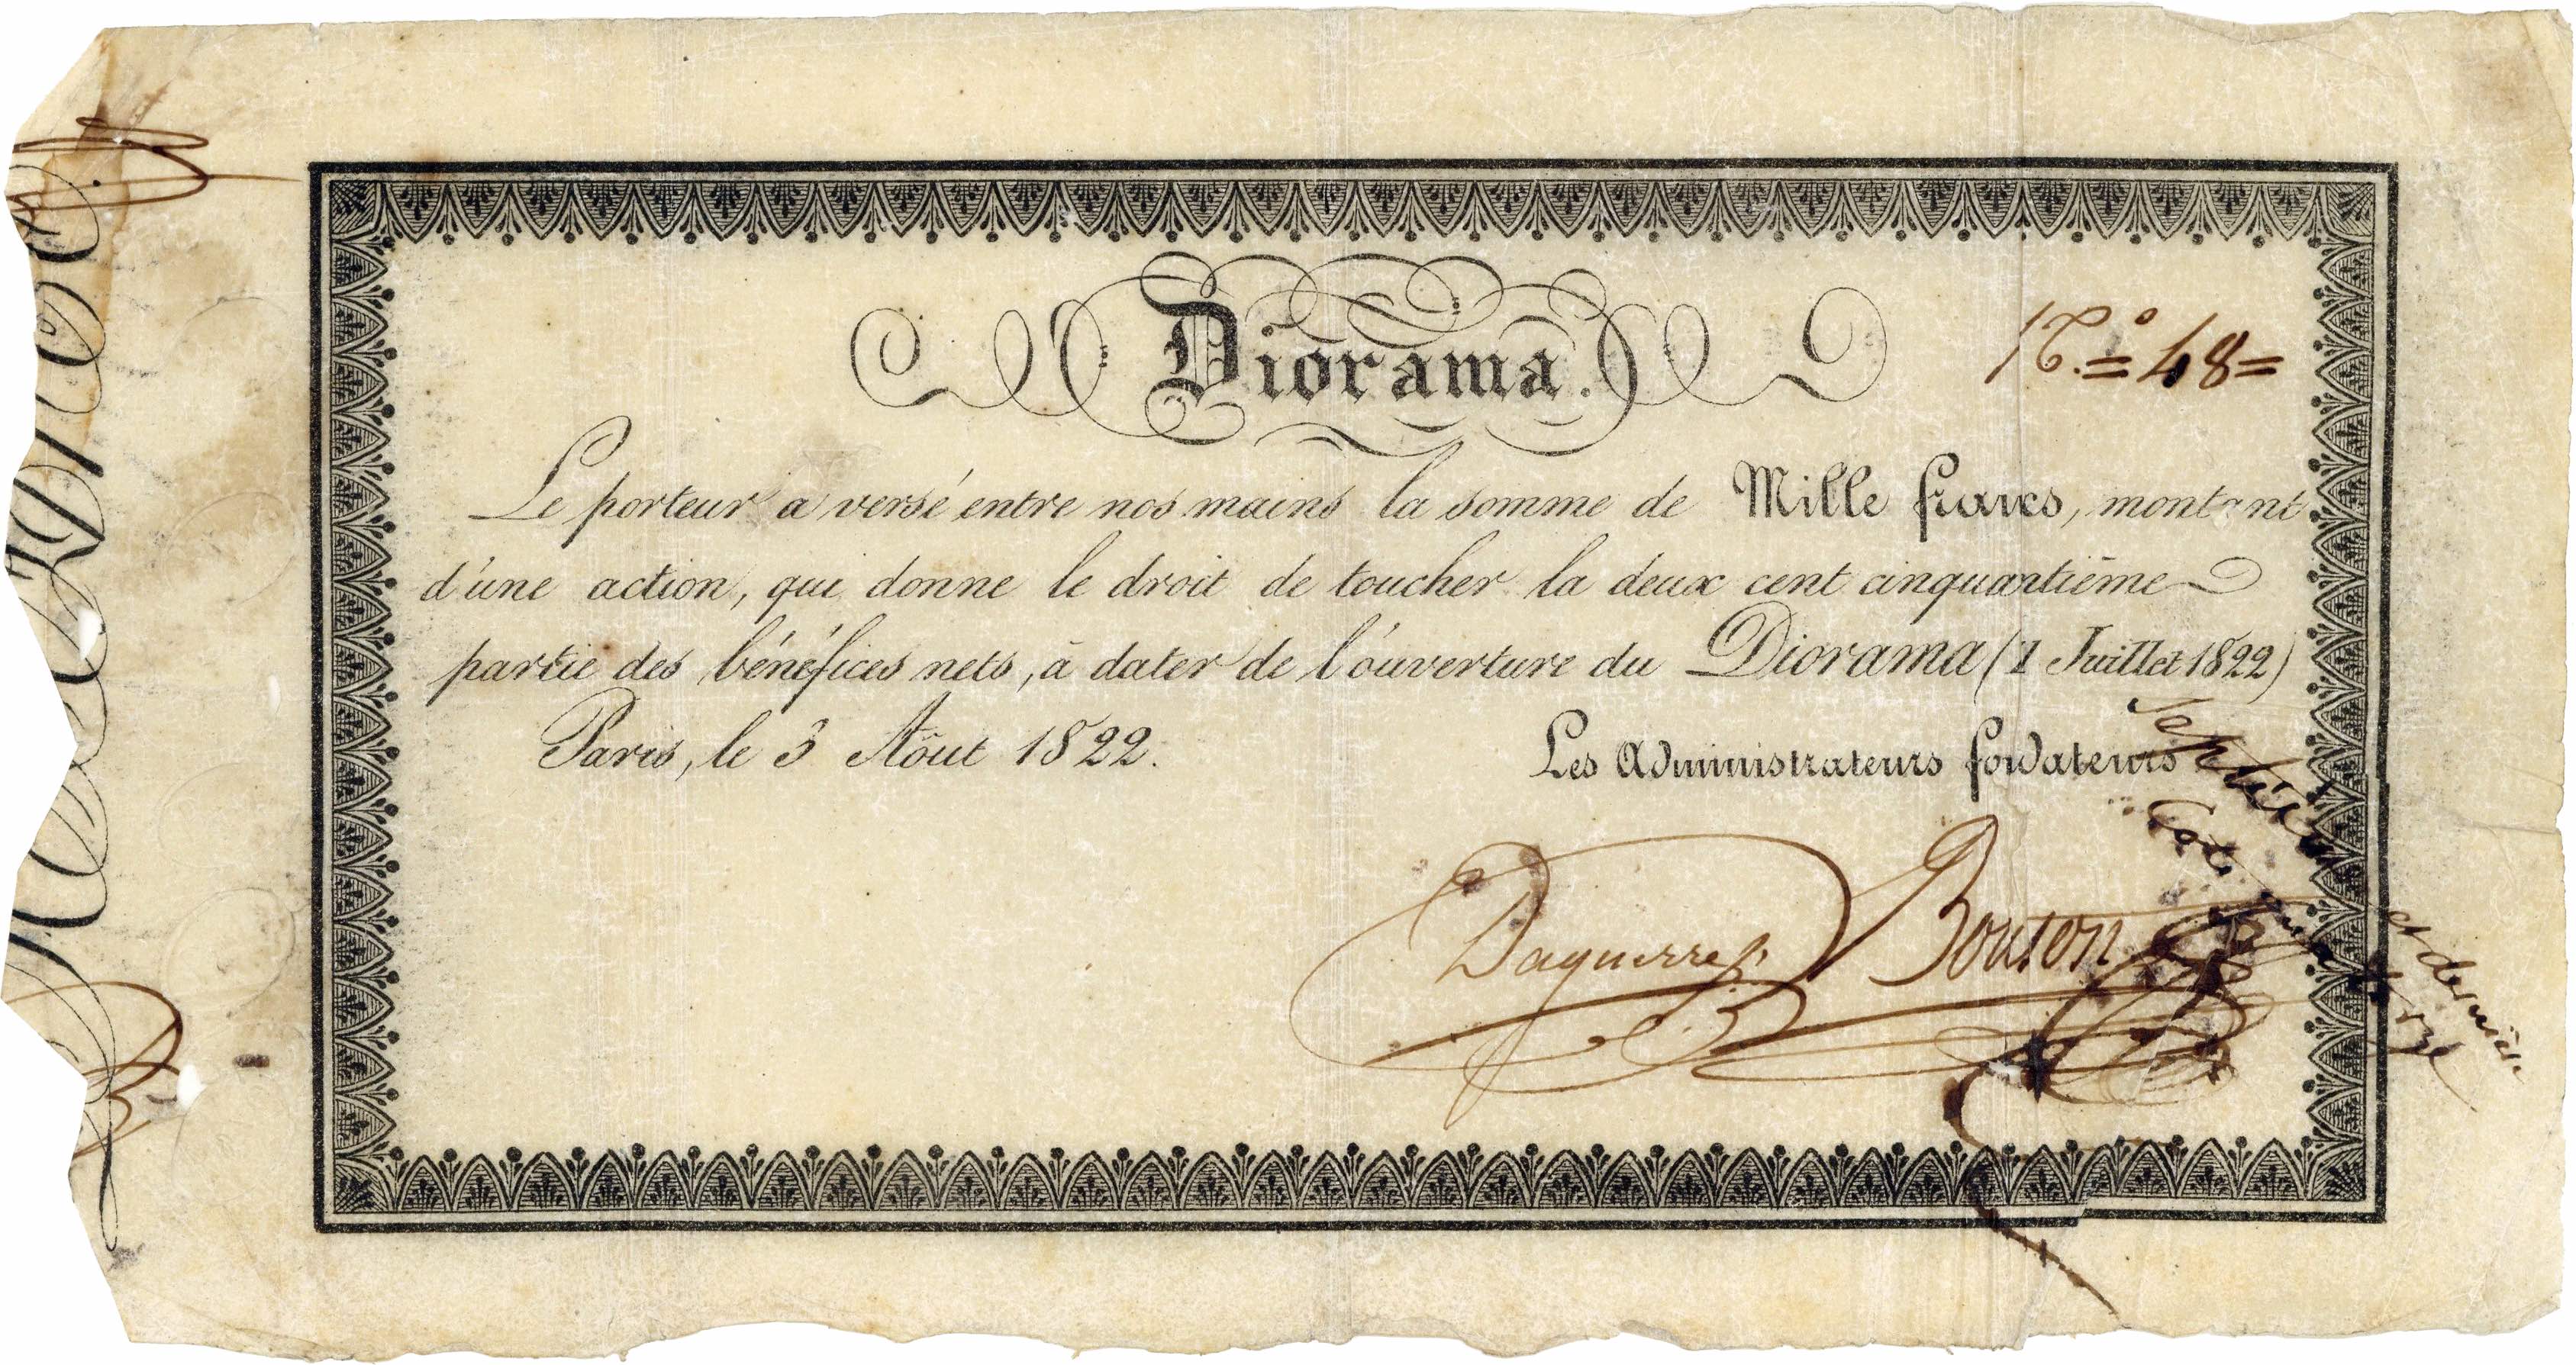 Diorama.
N.º = 48 =
Le porteur a versé entre nos mains la somme de Mille francs, montant
d'une action, qui donne le droit de toucher la deux cent cinquantième
partie des bénéfices nets, à dater de l'ouverture du Diorama (1 Juillet 1822)
Paris, le 3 Aôut 1822.
Les Administrateurs fondateurs
Daguerre
Bouton
et dernière